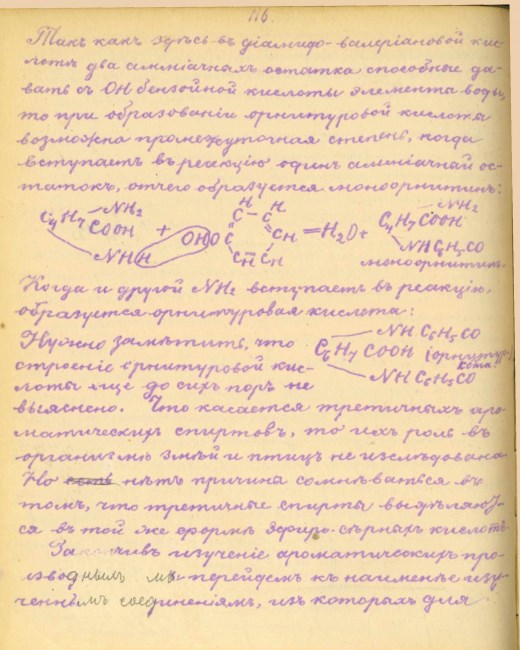 116.
Такъ какъ здѣсь въ діамидо-валеріановой кис-
лотѣ два амміачныхъ остатка способные да-
вать съ OH бензойной кислоты элемента воды,
то при образованіи орнитуровой кислоты
возможна промежуточная степень, когда
вступаетъ въ реакцію одинъ амміачный ос-
татокъ, отчего образуется моноорнитинъ:
C4H7 NH2 COOH NHH + OHO C C H C H CH CH CH = H2O + C4H7 NH2 COOH NHC6H5CO
моноорнитинъ
Когда и другой NH2 вступаетъ въ реакцію,
образуется орнитуровая кислота:
Нужно замѣтить, что
строеніе орнитуровой кис-
лоты еще до сихъ поръ не
C6H7 NHC6H5CO COOH NHC6H5CO (орнитур.
выяснено. Что касается третичныхъ аро-
матическихъ спиртовъ, то ихъ роль въ
организмѣ змѣй и птицъ не изслѣдована
Но есть нѣтъ причина сомнѣваться въ
томъ, что третичные спирты выдѣляют-
ся въ той же формѣ эфиро-сѣрныхъ кислотъ
Закончивъ изученіе ароматическихъ про-
изводнымъ мы перейдемъ къ наименѣе изу-
ченнымъ соединеніямъ, изъ которыхъ для